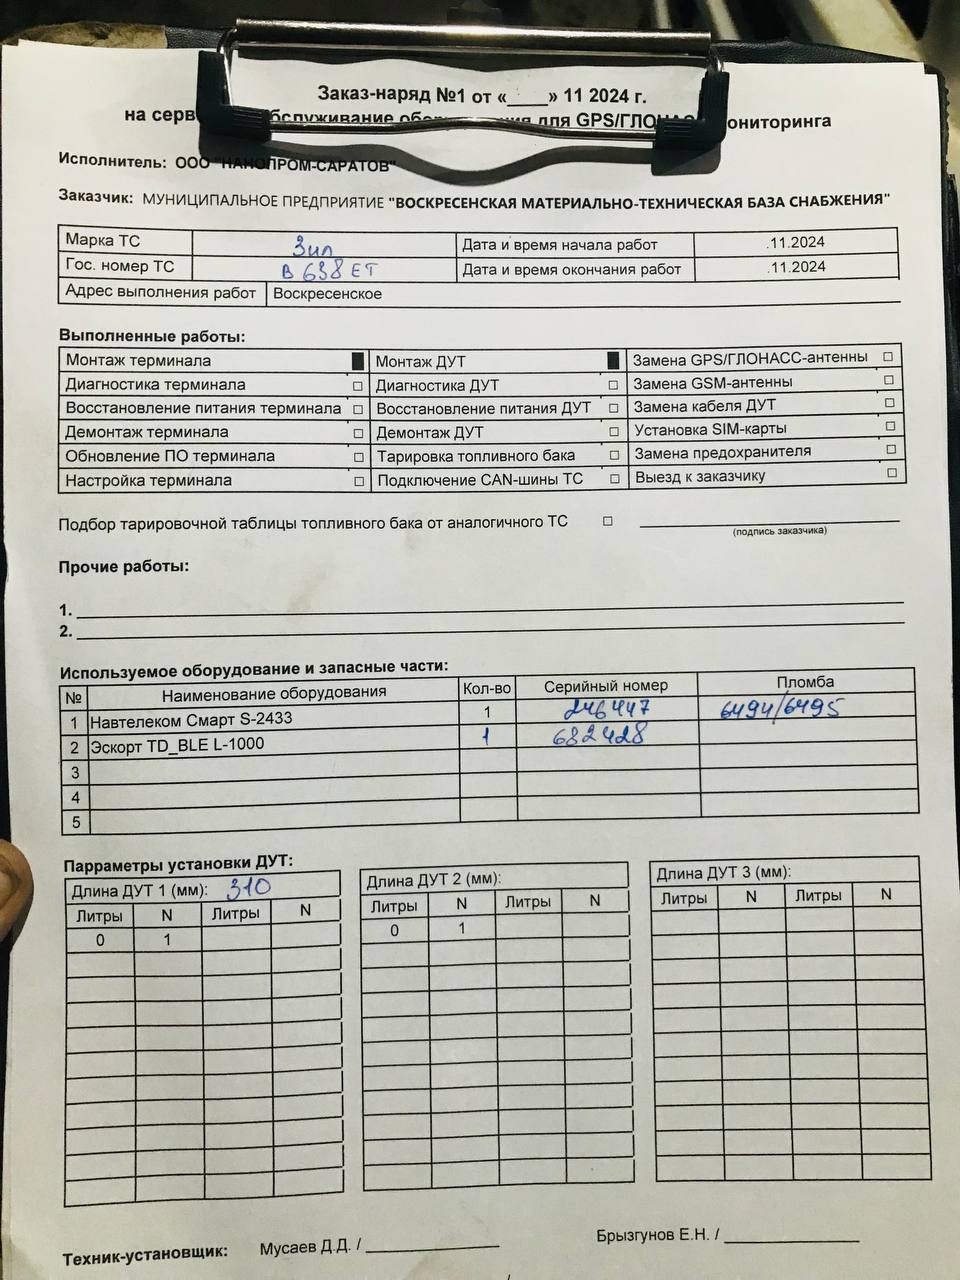 Заказ-наряд №1 от «____» 11 2024 г.
на обслуживание для GPS/ГЛОНАСС мониторинга
Исполнитель: ООО "НАНОПРОМ-САРАТОВ"
Заказчик: МУНИЦИПАЛЬНОЕ ПРЕДПРИЯТИЕ "ВОСКРЕСЕНСКАЯ МАТЕРИАЛЬНО-ТЕХНИЧЕСКАЯ БАЗА СНАБЖЕНИЯ"
Марка ТС Зил Дата и время начала работ .11.2024
Гос. номер ТС В 638 ЕТ Дата и время окончания работ .11.2024
Адрес выполнения работ Воскресенское
Выполненные работы:
Монтаж терминала ■ Монтаж ДУТ ■ Замена GPS/ГЛОНАСС-антенны □
Диагностика терминала □ Диагностика ДУТ □ Замена GSM-антенны □
Восстановление питания терминала □ Восстановление питания ДУТ □ Замена кабеля ДУТ □
Демонтаж терминала □ Демонтаж ДУТ □ Установка SIM-карты □
Обновление ПО терминала □ Тарировка топливного бака □ Замена предохранителя □
Настройка терминала □ Подключение CAN-шины ТС □ Выезд к заказчику □
Подбор тарировочной таблицы топливного бака от аналогичного ТС □
(подпись заказчика)
Прочие работы:
1.
2.
Используемое оборудование и запасные части:
№ Наименование оборудования Кол-во Серийный номер Пломба
1 Навтелеком Смарт S-2433 1 246447 6494/6495
2 Эскорт TD_BLE L-1000 1 682428
3
4
5
Парраметры установки ДУТ:
Длина ДУТ 1 (мм): 310 Длина ДУТ 2 (мм): Длина ДУТ 3 (мм):
Литры N Литры N Литры N Литры N Литры N Литры N
0 1 0 1
Техник-установщик: Мусаев Д.Д. / Брызгунов Е.Н. /